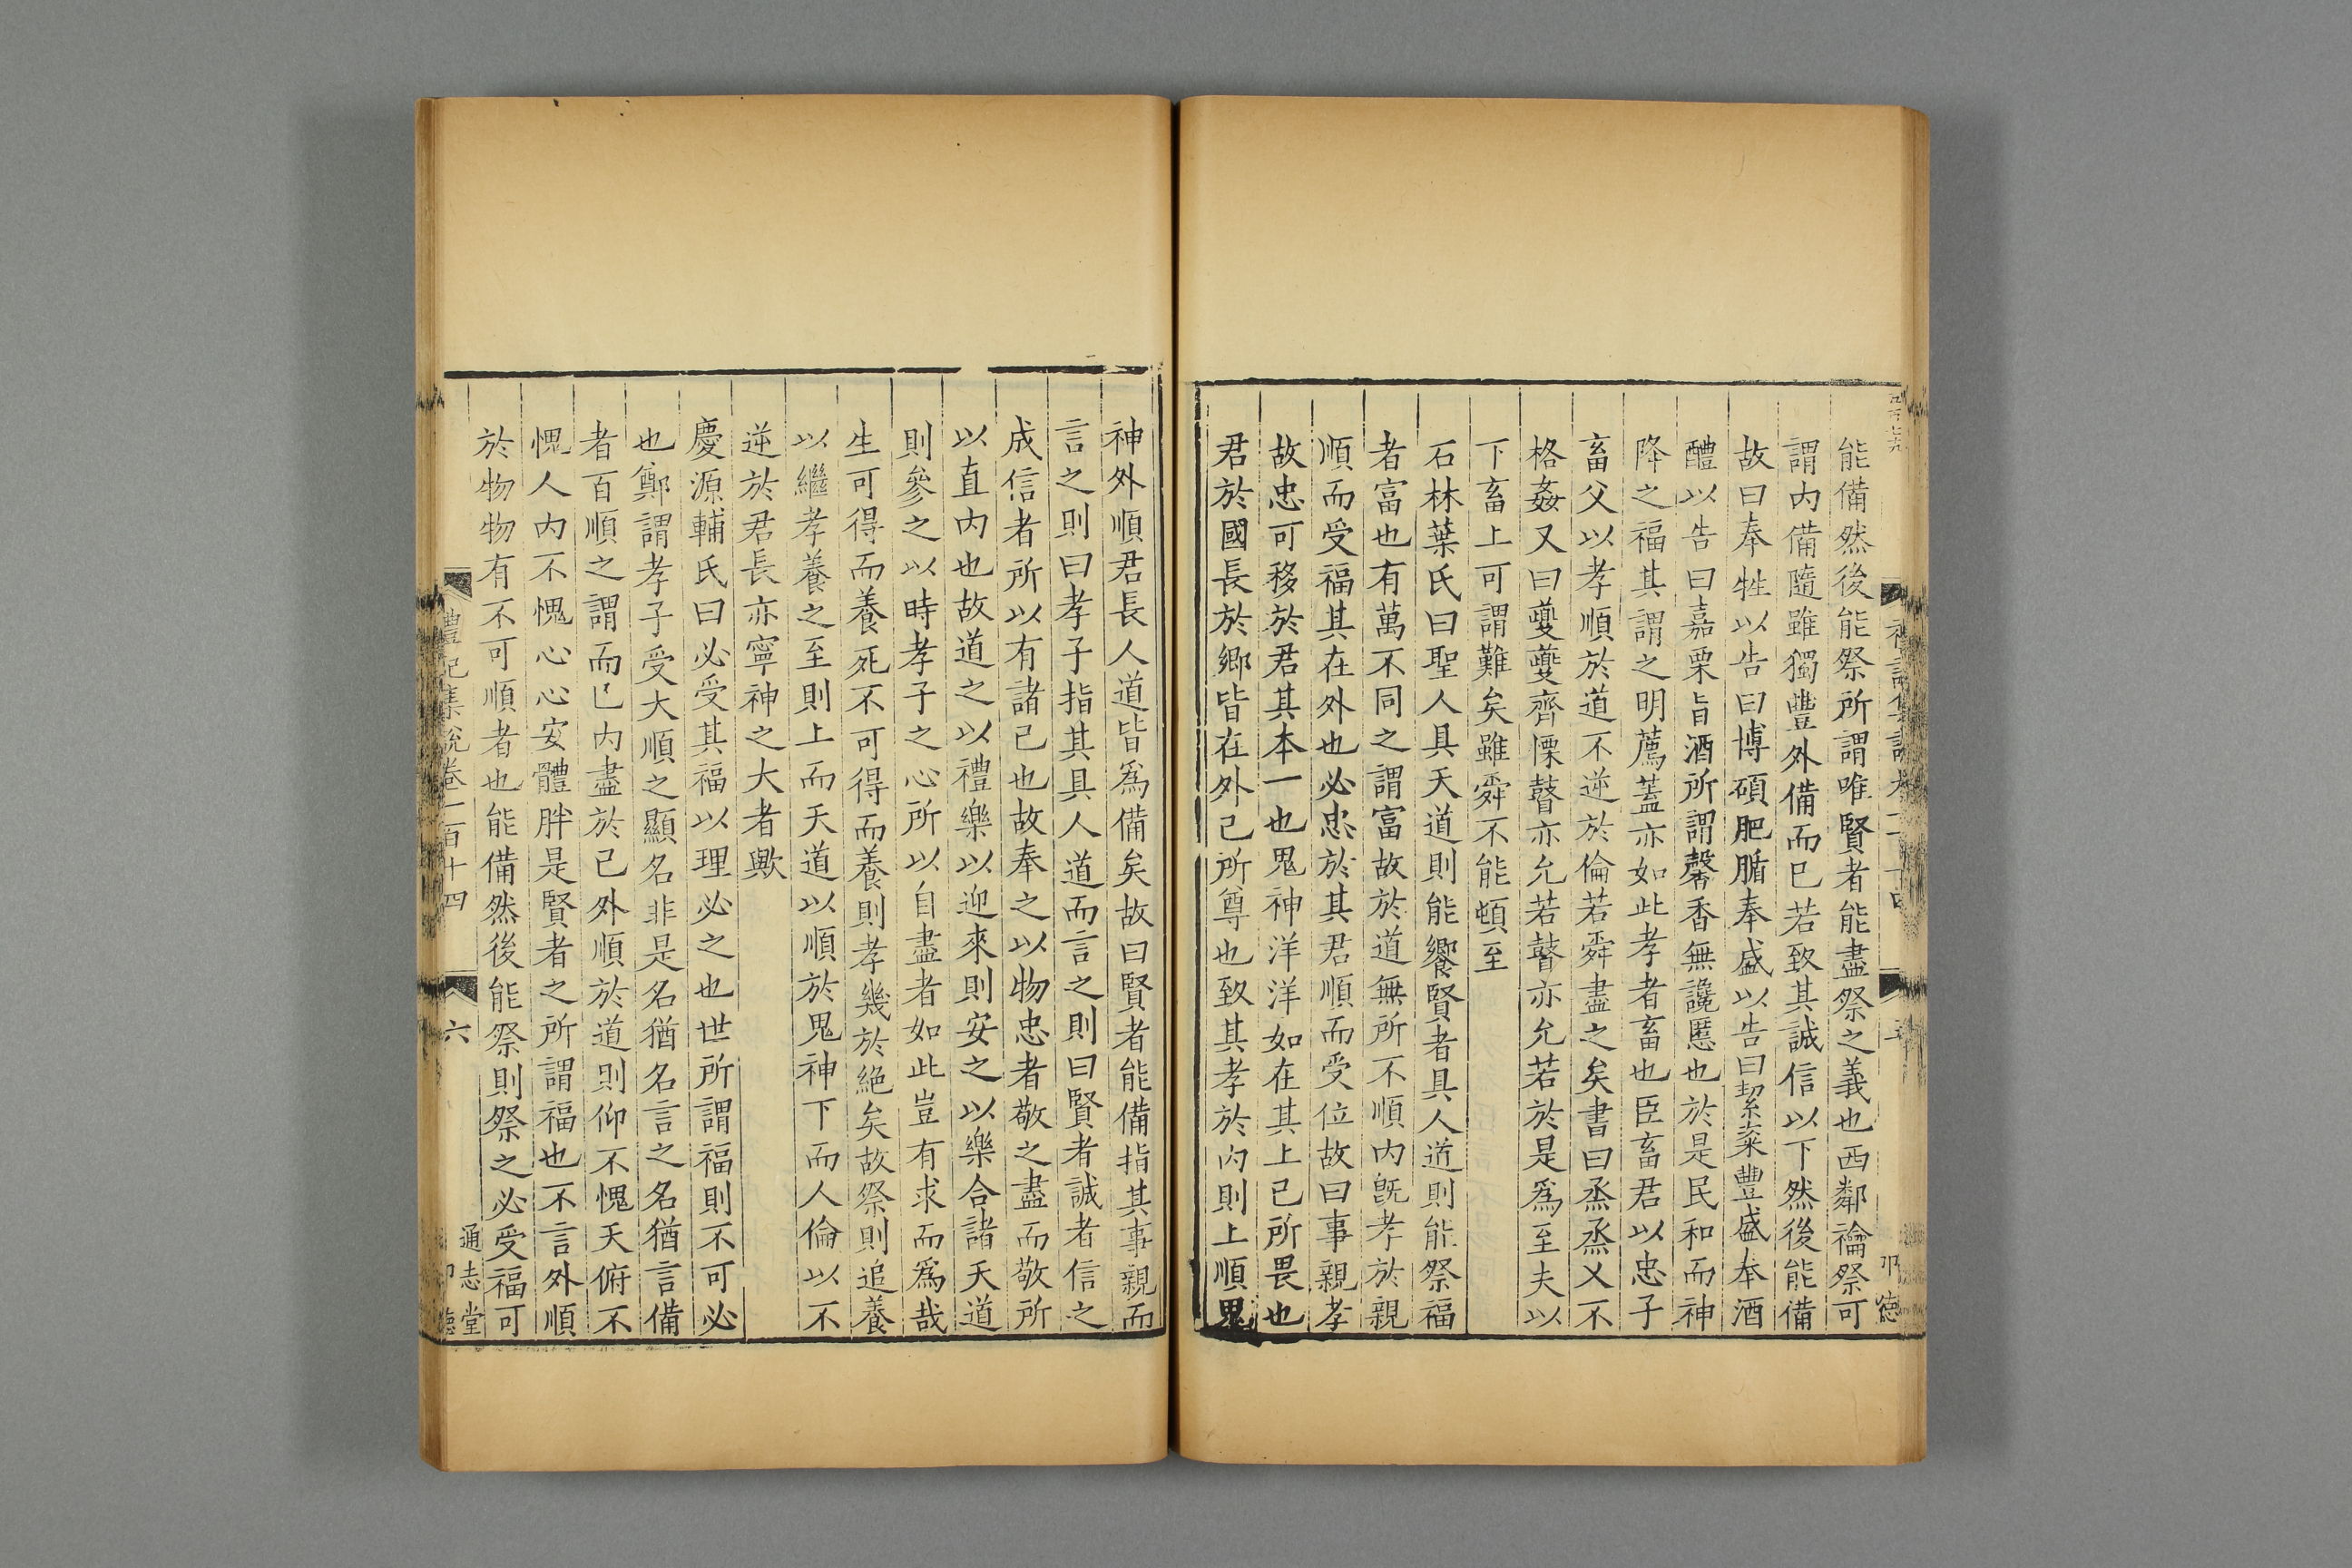 能備然後能祭所謂唯賢者能盡祭之義也西鄰禴祭可
謂内備隨雖獨豐外備而已若致其誠信以下然後能備
故曰奉牲以告曰博碩肥腯奉盛以告曰絜粢豐盛奉酒
醴以告曰嘉栗旨酒所謂馨香無讒慝也於是民和而神
降之福其謂之明薦蓋亦如此孝者畜也臣畜君以忠子
畜父以孝順於道不逆於倫若舜盡之矣書曰烝烝乂不
格姦又曰夔夔齊慄瞽亦允若瞽亦允若於是爲至夫以
下畜上可謂難矣雖舜不能頓至
石林葉氏曰聖人具天道則能饗賢者具人道則能祭福
者富也有萬不同之謂富故於道無所不順内旣孝於親
順而受福其在外也必忠於其君順而受位故曰事親孝
故忠可移於君其本一也鬼神洋洋如在其上已所畏也
君於國長於鄉皆在外己所尊也致其孝於内則上順鬼
神外順君長人道皆爲備矣故曰賢者能備指其事親而
言之則曰孝子指其具人道而言之則曰賢者誠者信之
成信者所以有諸己也故奉之以物忠者敬之盡而敬所
以直内也故道之以禮樂以迎來則安之以樂合諸天道
則參之以時孝子之心所以自盡者如此豈有求而爲哉
生可得而養死不可得而養則孝幾於絶矣故祭則追養
以繼孝養之至則上而天道以順於鬼神下而人倫以不
逆於君長亦寧神之大者歟
慶源輔氏曰必受其福以理必之也世所謂福則不可必
也鄭謂孝子受大順之顯名非是名猶名言之名猶言備
者百順之謂而已内盡於己外順於道則仰不愧天俯不
愧人内不愧心心安體胖是賢者之所謂福也不言外順
於物物有不可順者也能備然後能祭則祭之必受福可
禮記集說卷一百十四
六
通志堂